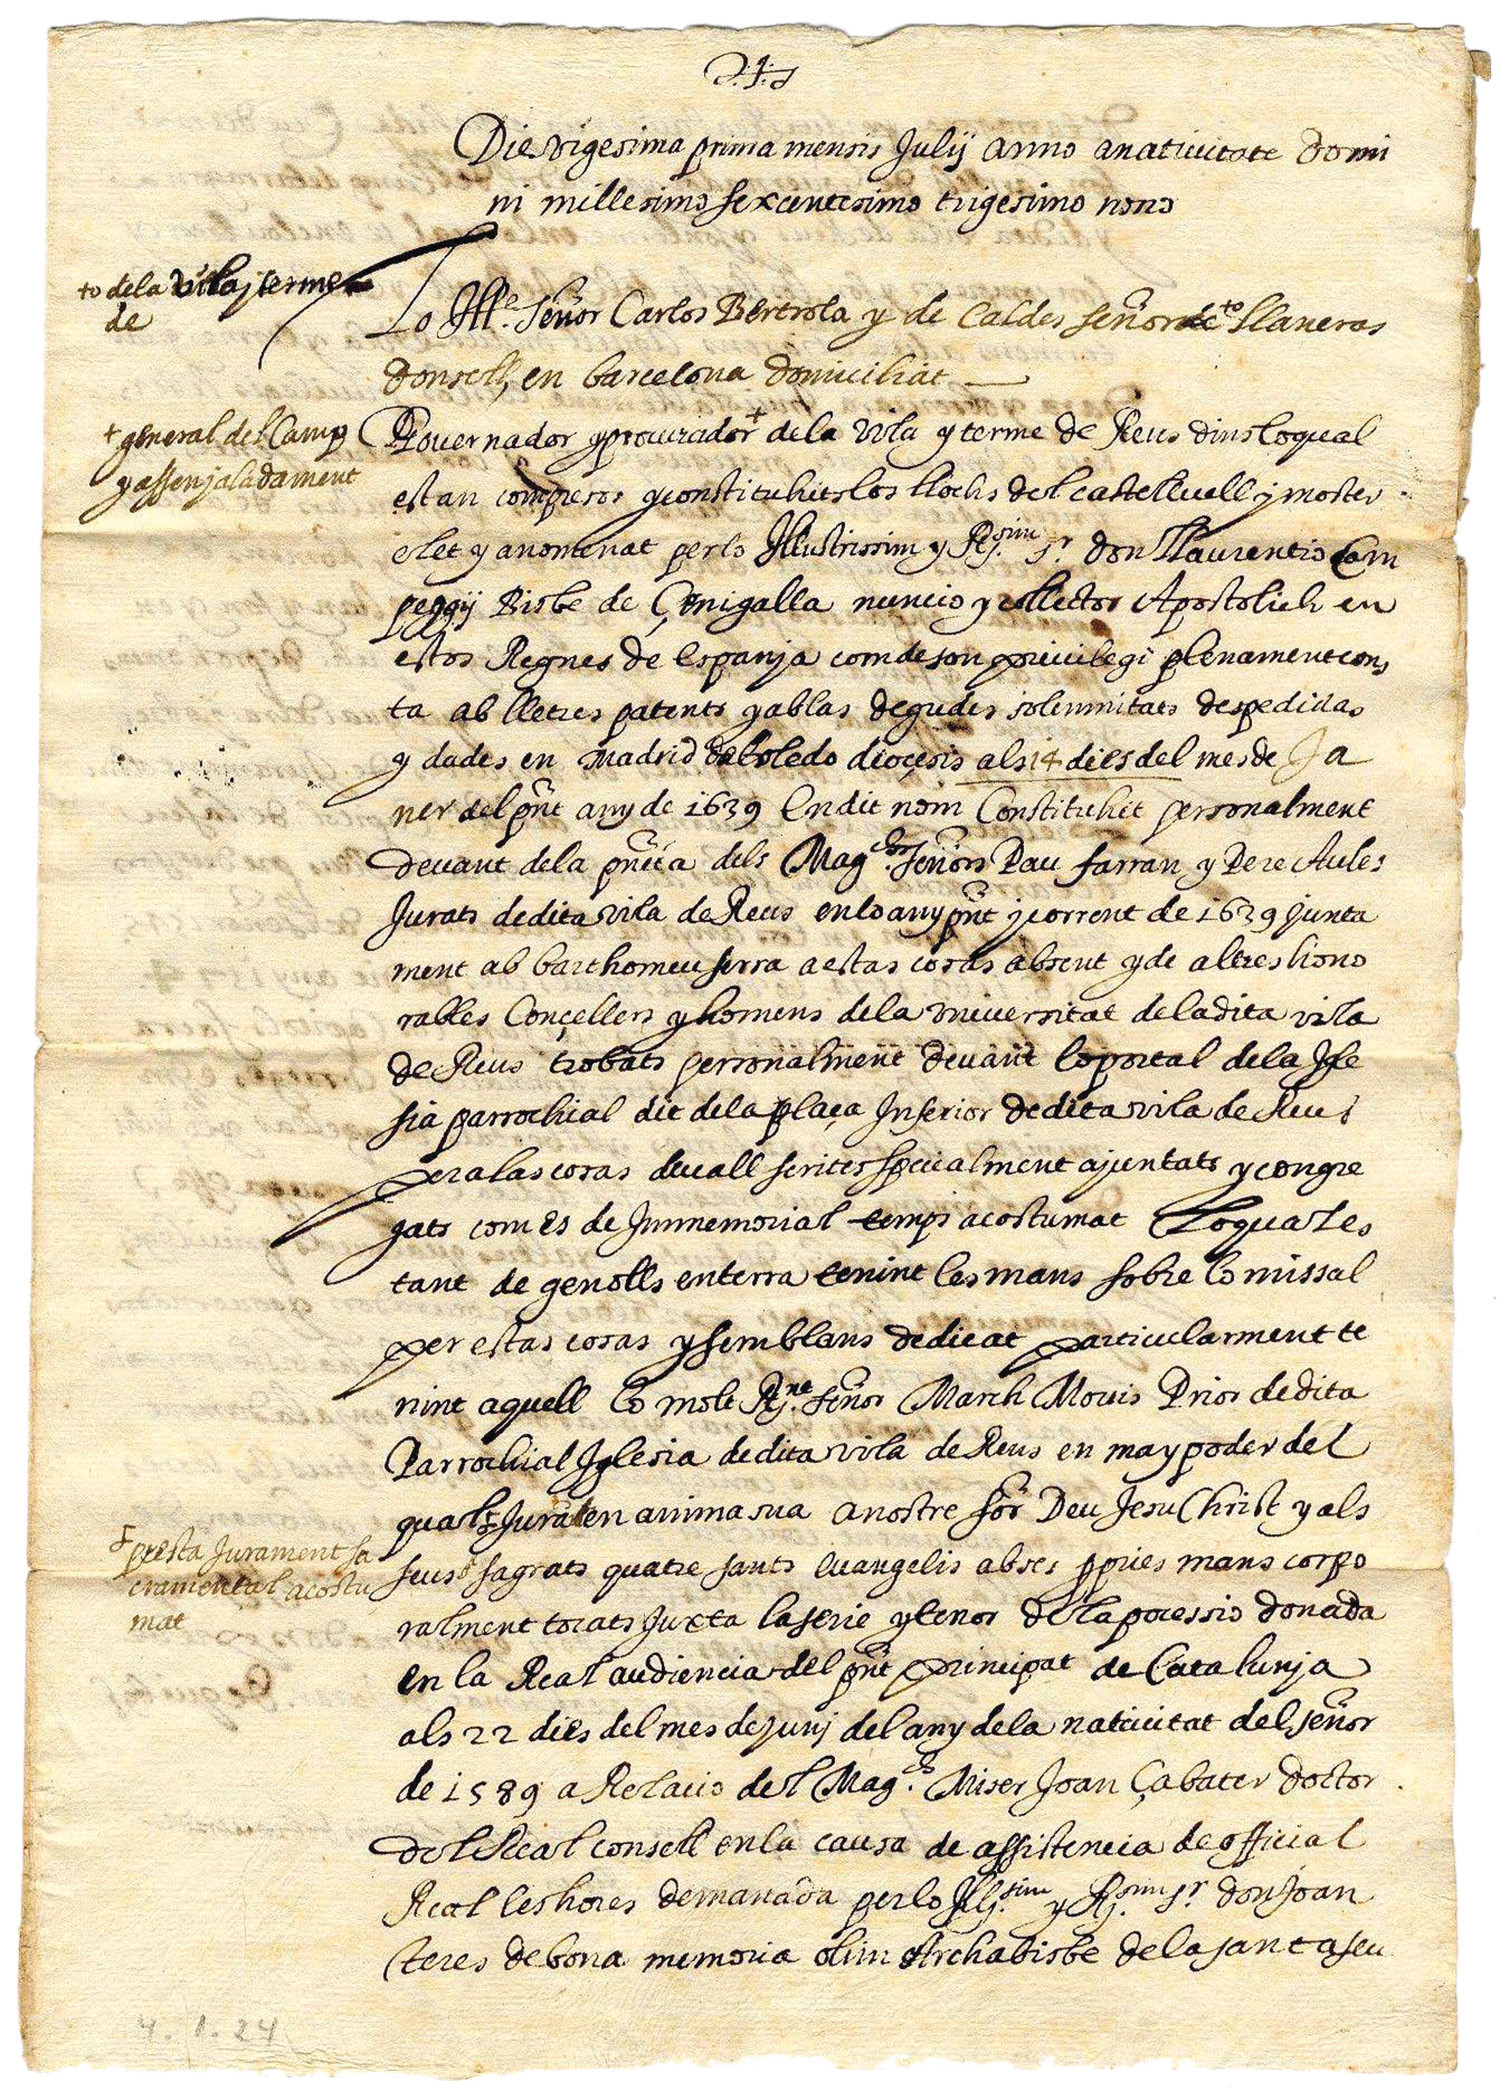 Die vigesima prima mensis Julij anno anativitate domi
ni millesimo sexcentesimo trigesimo nono
+o dela vila y terme
de
Lo Ill.e Señor Carlos Bertrola y de Caldes señor de +o Llaneras
donsell, en barcelona domiciliat
+ general del Camp
y assenjaladament
Governador y procurador + dela vila y terme de Reus dins loqual
estan compresos y constituhits los llochs del castellvell y moster
olet y anomenat per lo Illustrissim y R.sim Sr. don Llaurentio Cam
peggij Bisbe de Çenigalla nuncio y collector Apostolich en
estos Regnes de Espanja com de son privilegi plenament cons
ta ab lletres patents y ab las degudes solemnitats despedidas
y dades en Madrid de toledo dioçesis als 14 dies del mes de Ja
ner del pñt any de 1639 En dit nom Constituhit personalment
devant dela pñtia dels Mag.chs Señors Pau farran y Pere Aules
Jurats de dita vila de Reus en lo any pñt y corrent de 1639 junta
ment ab barthomeu serra a estas cosas absent y de altres hono
rables Conçellers y homens dela universitat dela dita vila
de Reus trobats personalment devant lo portal dela Igle
sia parrochial dit dela plaça Inferior de dita vila de Reus
pera las cosas devall scrites specialment ajuntats y congre
gats com es de Immemorial temps acostumat Loqual es
tant de genolls en terra tenint les mans sobre lo missal
per estas cosas y semblans dedicat particularment te
nint aquell lo molt R.nt señor March Movis Prior de dita
Parrochial Iglesia de dita vila de Reus en ma y poder del
qual Jura en anima sua a nostre sor Deu Jesu Christ y als
+
presta Jurament sa
cramental acostu
mat
seus sagrats quatre sants evangelis ab ses ppries mans corpo
ralment tocats Juxta la serie y tenor de la pocessio donada
en la Real audiencia del pñt principat de Catalunja
als 22 dies del mes de Junj del any dela nativitat del señor
de 1589 a Relacio del Mag.ch Miser Joan Çabater doctor
del Real consell en la causa de assistencia de official
Real les hores demanada per lo Ill.sim y R.sim Sr. don Joan
teres de bona memoria olim Archabisbe dela santa seu
4. 1. 24